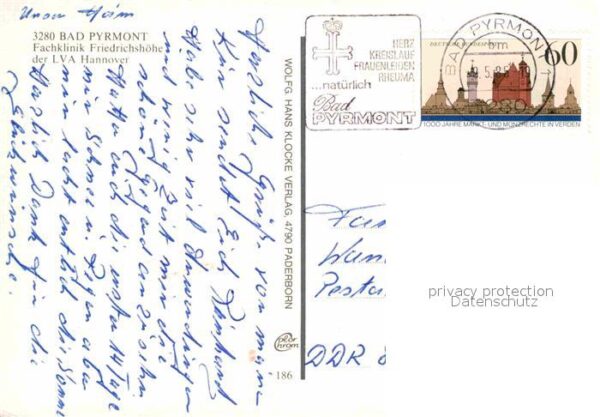 Unser Heim
3280 BAD PYRMONT
Fachklinik Friedrichshöhe
der LVA Hannover
Herzliche Grüße von meiner
Kur sendet Euch Reinhard
Habe sehr viel Anwendungen
und wenig Zeit mir die
schöne Gegend anzusehn
Hatten auch die ersten 14 Tage
nur Schnee u. Regen aber
nun lacht endlich die Sonne
Herzlich Dank für die
Glückwünsche.
WOLFG. HANS KLOCKE VERLAG, 4790 PADERBORN
186
HERZ
KREISLAUF
FRAUENLEIDEN
RHEUMA
...natürlich
Bad
PYRMONT
BAD PYRMONT 1
bm
DEUTSCHE BUNDESPOST
60
1000 JAHRE MARKT- UND MÜNZRECHTE IN VERDEN
Fam
Pesta
DDR
privacy protection
Datenschutz